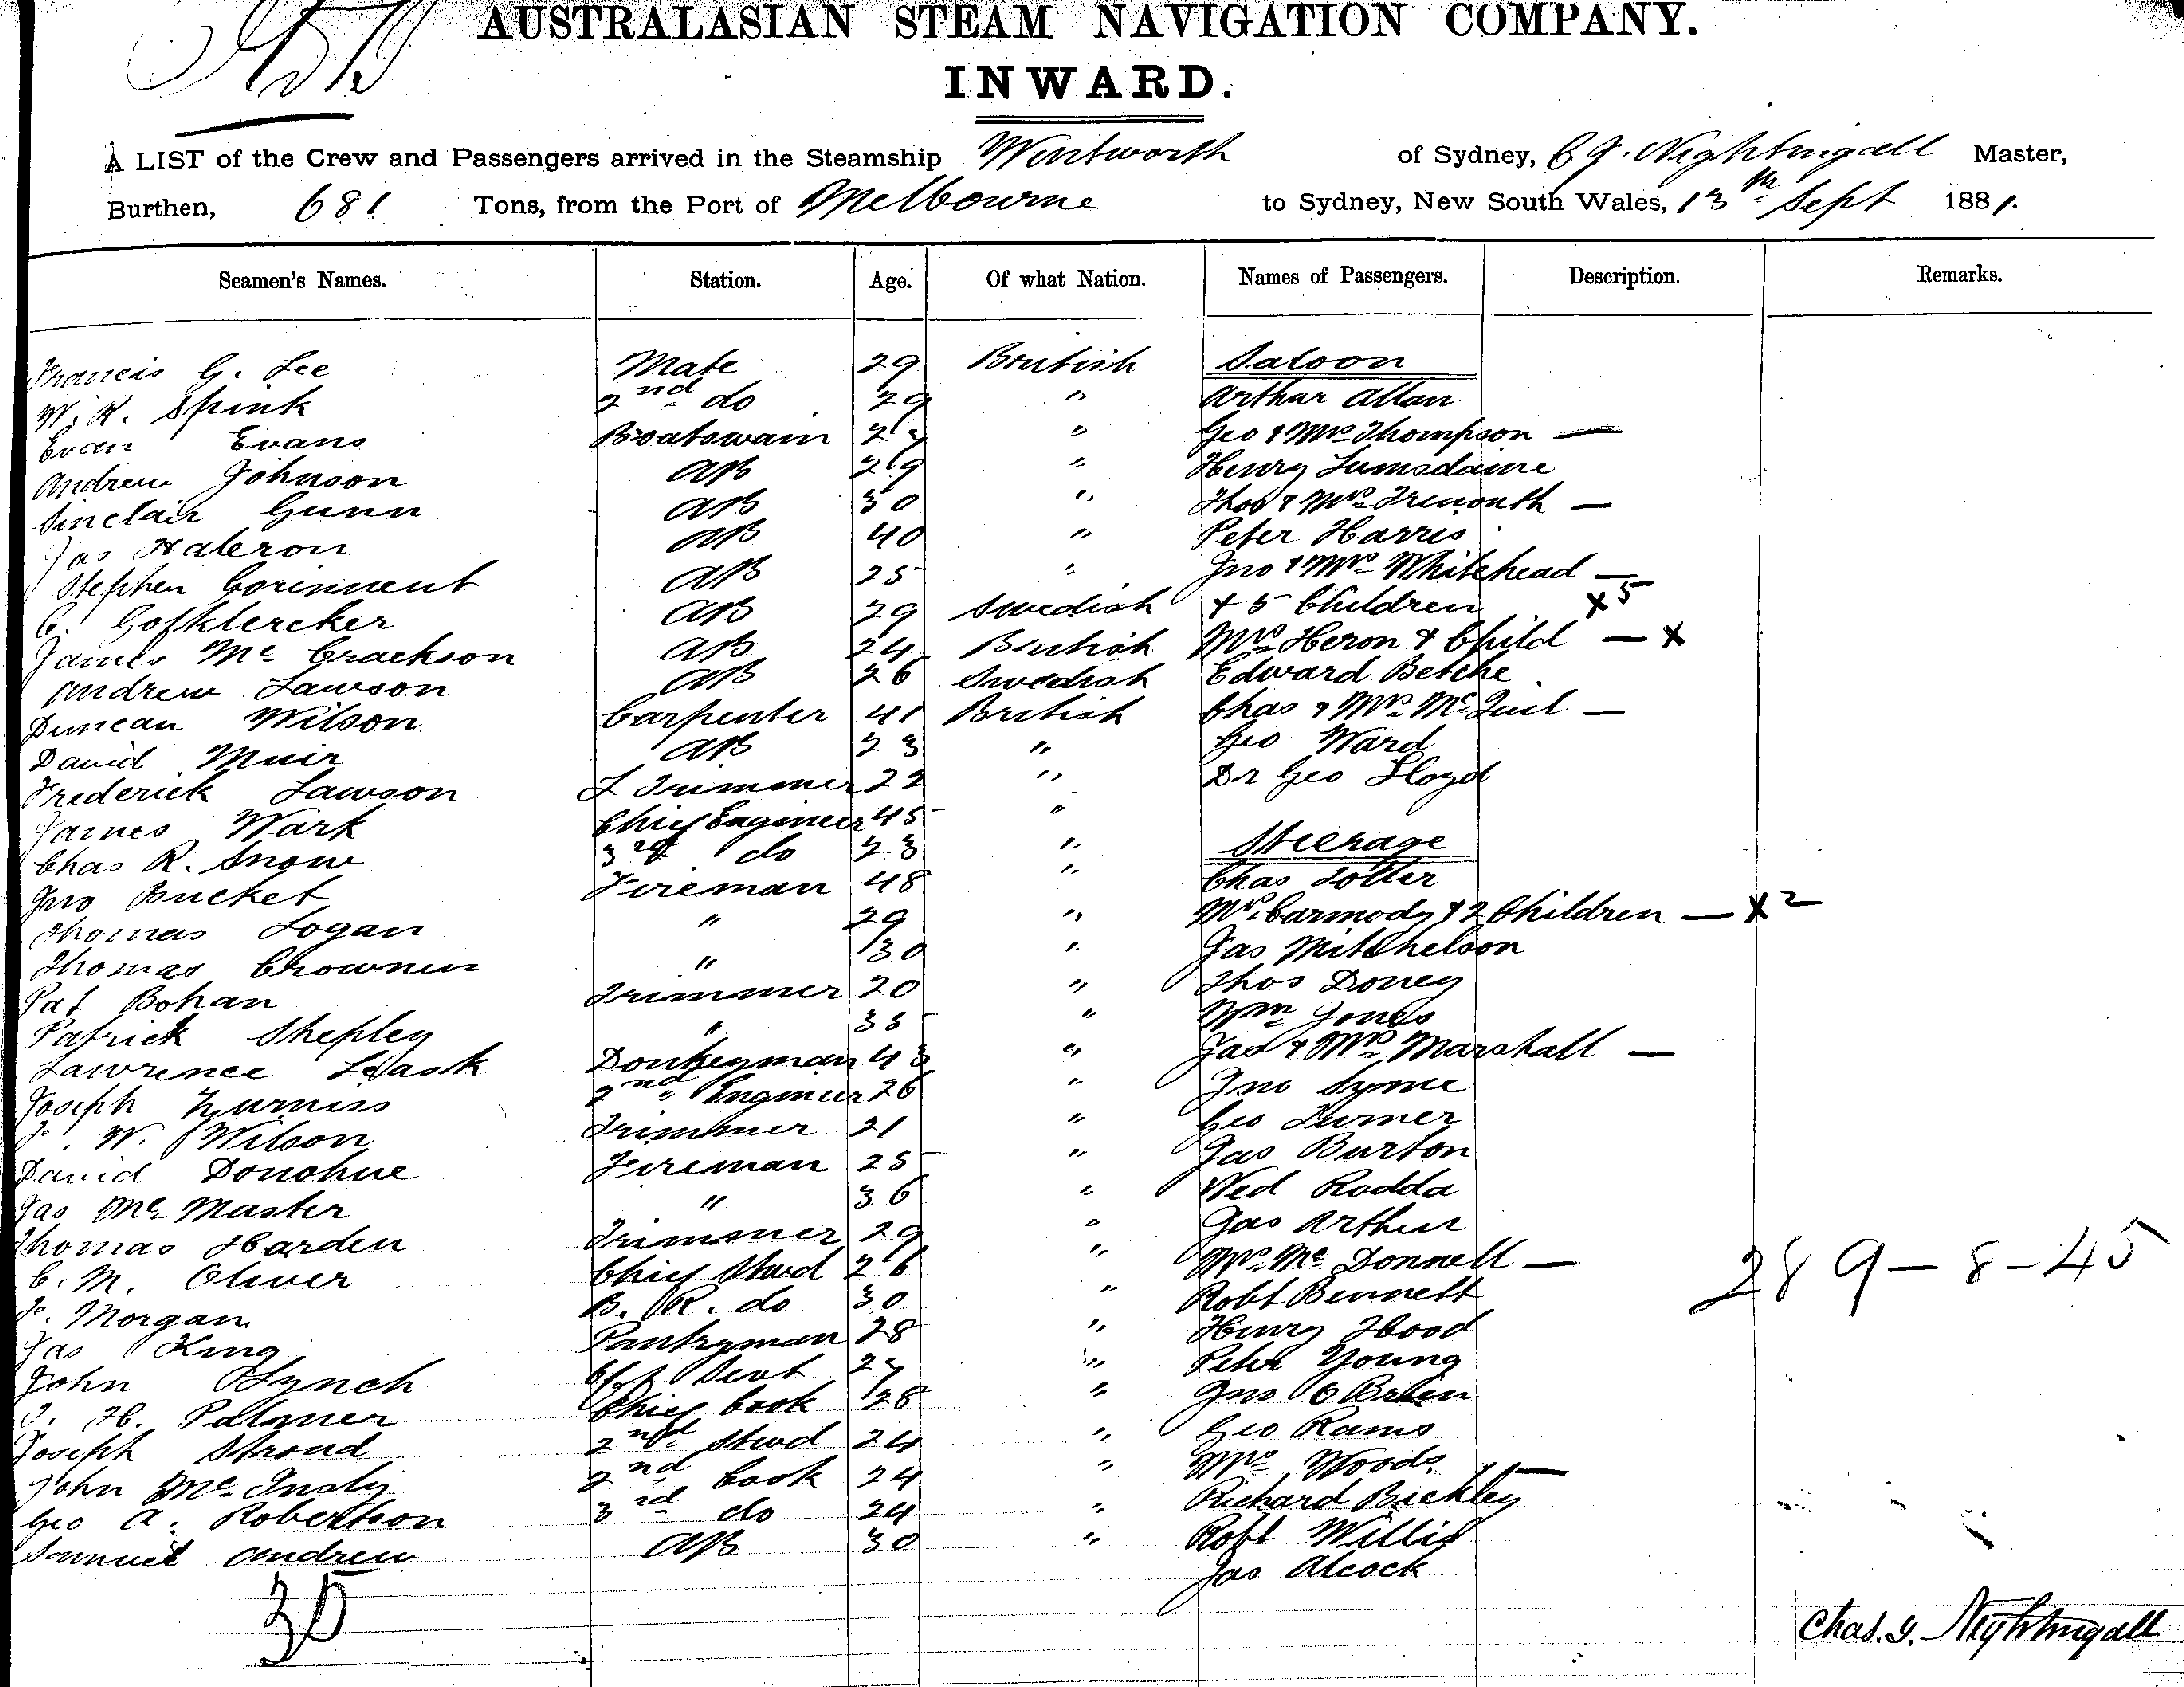 AUSTRALASIAN STEAM NAVIGATION COMPANY.
INWARD.
A LIST of the Crew and Passengers arrived in the Steamship Wentworth of Sydney, C G. Nightingall Master,
Burthen, 681 Tons, from the Port of Melbourne to Sydney, New South Wales, 13th Sept 1881.
Seamen's Names. Station. Age. Of what Nation. Names of Passengers. Description. Remarks.
Francis G. Lee Mate 29 British Saloon
W. R. Spink 2nd do 29 " Arthur Allan
Evan Evans Boatswain 27 " Geo & Mrs Thompson —
Andrew Johnson AB 29 " Henry Lumsdaine
Sinclair Gunn AB 30 " Thos & Mrs Tremonth —
Jas AB 40 " Peter Harris
Stephen AB 25 " Jno & Mrs Whitehead —
C. AB 29 Swedish & 5 Children x5
James Mc Crackson AB 24 British Mrs Heron & Child — x
Andrew Lawson AB 26 Swedish Edward Betche
Duncan Wilson Carpenter 41 British Chas & Mrs —
David Muir AB 23 " Geo Ward
Frederick Lawson Trimmer 22 " Dr Geo Lloyd
James Wark Chief Engineer 45 "
Chas R. Snow 3rd do 23 " Steerage
Jno Bucket Fireman 48 " Chas Totter
Thomas Logan " 29 " Mrs Carmody & 2 Children — x2
Thomas " 30 " Jas Mitchelson
Pat Bohan Trimmer 20 " Thos Doney
Patrick Shepley " 35 " Wm Jones
Lawrence Donkeyman 43 " Jas & Mrs Marshall —
Joseph Furniss 2nd Engineer 26 " Jno Syme
W. Wilson Trimmer 21 " Geo Turner
David Donohue Fireman 25 " Jas Burton
Jas Mc Master " 36 " Ned Rodda
Thomas Harden Trimmer 29 " Jas Arthur
C. M. Oliver Chief Stwd 26 " Mrs Mc Donnell — 289-8-45
Morgan B. R. do 30 " Robt Bennett
Jas King Pantryman 28 " Henry Hood
John Lynch 27 " Peter Young
H. Palmer Chief Cook 28 " Jno O Brien
Joseph Stroud 2nd Stwd 24 " Geo Rams
John Mc 2nd Cook 24 " Mrs Woods —
Geo A. Robertson 3rd do 24 " Richard Bickley
Samuel Andrew AB 30 " Robt Willis
Jas Alcock
35
Chas. G. Nightingall